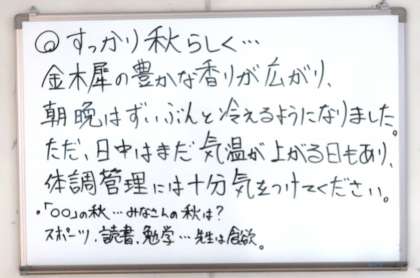 ◎すっかり秋らしく…
金木犀の豊かな香りが広がり、
朝晩はずいぶんと冷えるようになりました。
ただ、日中はまだ気温が上がる日もあり、
体調管理には十分気をつけてください。
・「○○」の秋…みなさんの秋は?
スポーツ、読書、勉学…先生は食欲。